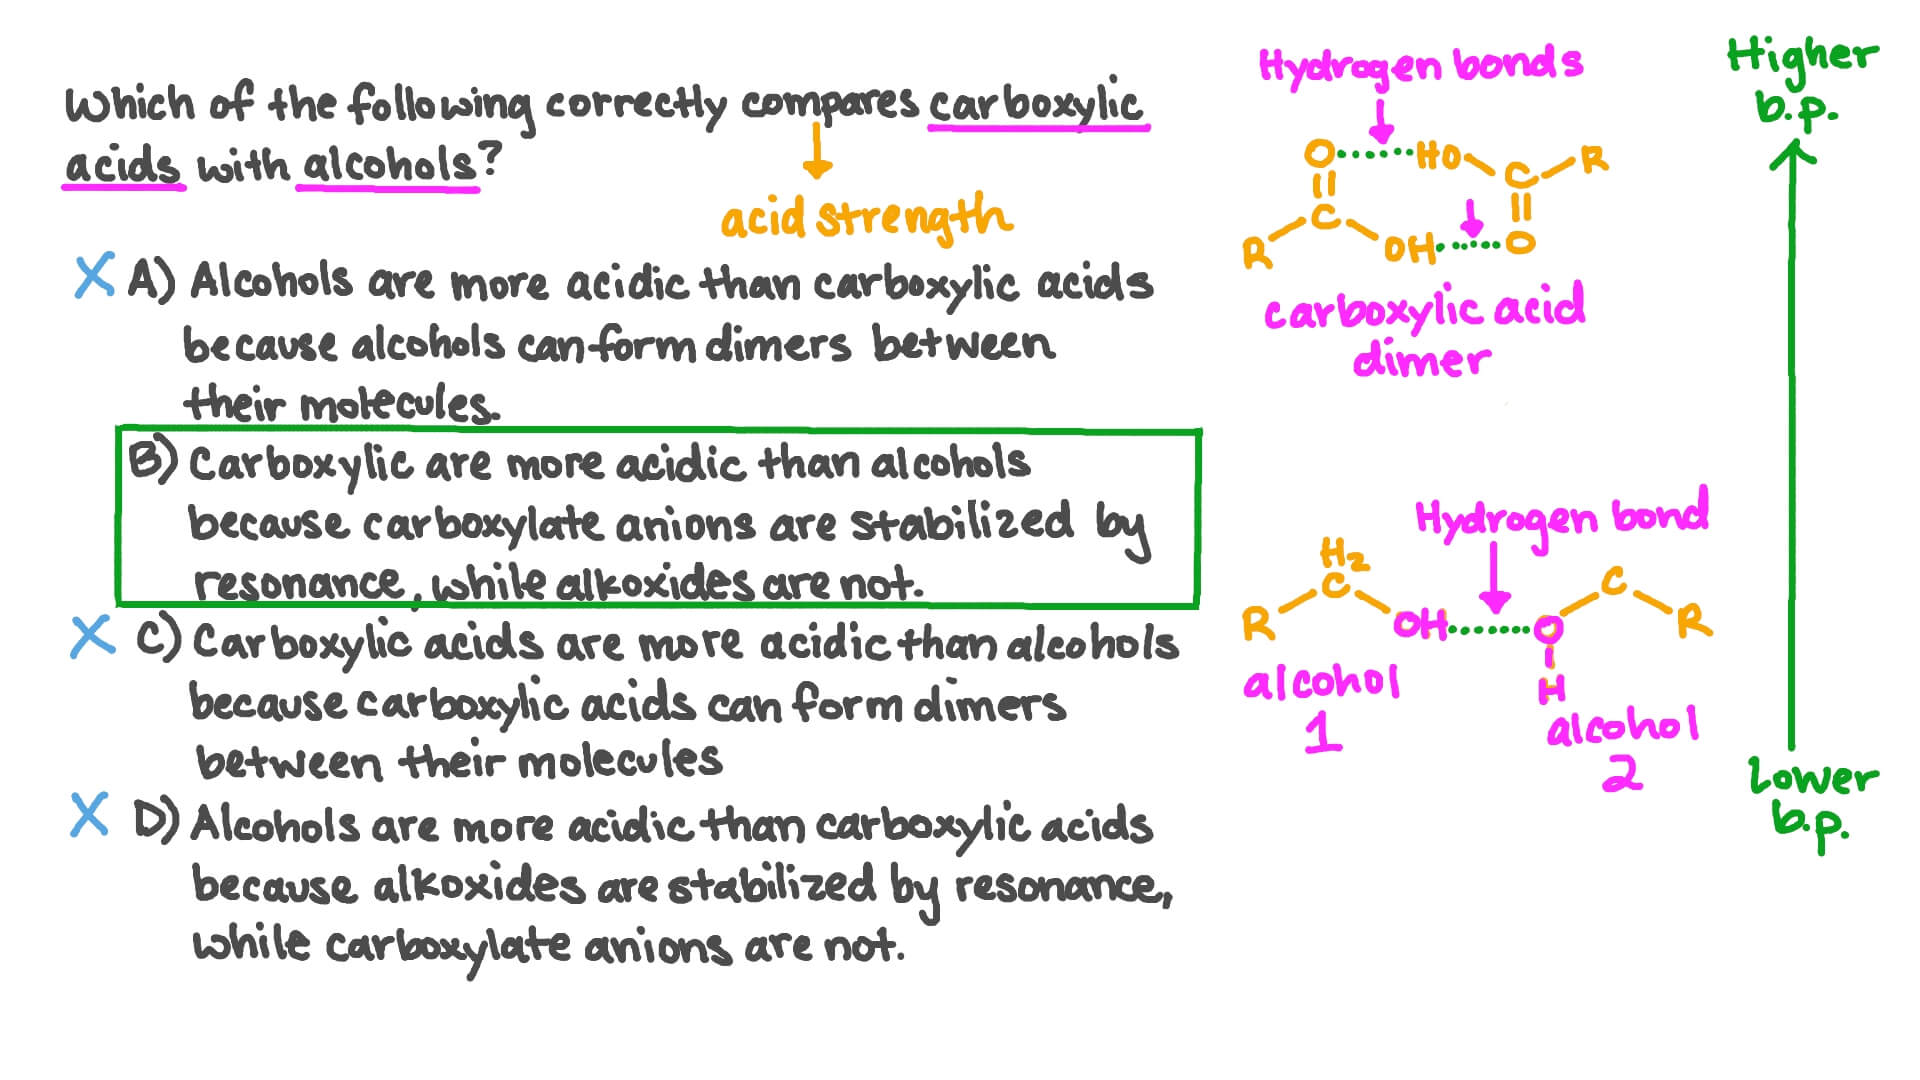 Which of the following correctly compares carboxylic
acids with alcohols?
acid strength
X A) Alcohols are more acidic than carboxylic acids
because alcohols can form dimers between
their molecules.
B) Carboxylic are more acidic than alcohols
because carboxylate anions are stabilized by
resonance, while alkoxides are not.
X C) Carboxylic acids are more acidic than alcohols
because carboxylic acids can form dimers
between their molecules
X D) Alcohols are more acidic than carboxylic acids
because alkoxides are stabilized by resonance,
while carboxylate anions are not.
Hydrogen bonds
O HO C R
R C OH O
carboxylic acid
dimer
Hydrogen bond
H2
R C OH O C R
H
alcohol
1
alcohol
2
Higher
b.p.
Lower
b.p.